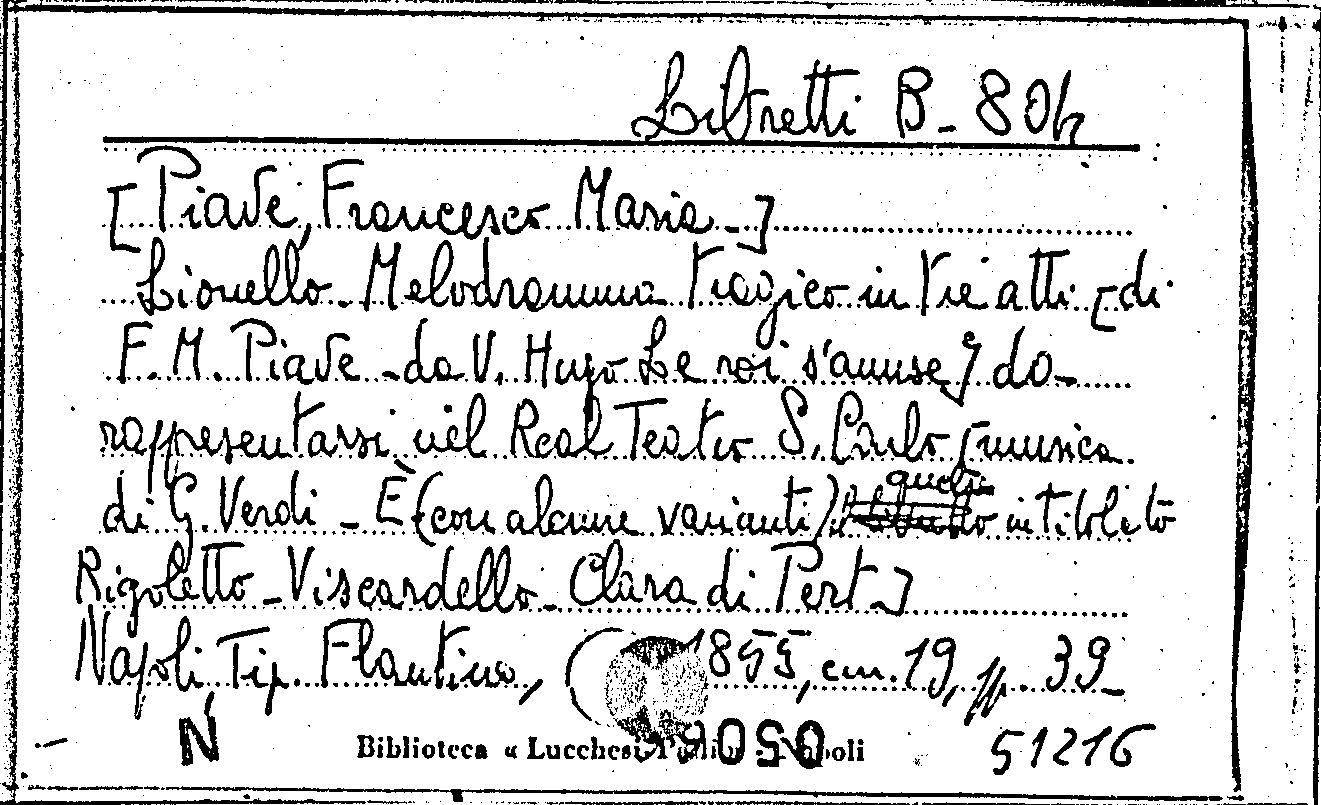 Libretti B - 804
[Piave, Francesco Maria -]
Lionello - Melodramma tragico in tre atti [di
F. M. Piave - da V. Hugo Le roi s'amuse] da
rappresentarsi nel Real Teatro S. Carlo [musica
di G. Verdi - È (con alcune varianti) quello intitolato
Rigoletto - Viscardello - Clara di Pert -]
Napoli, Tip. Flautina, 1855, cm. 19, pp. 39 -
N
Biblioteca « Lucchesi Palli » - Napoli
51216